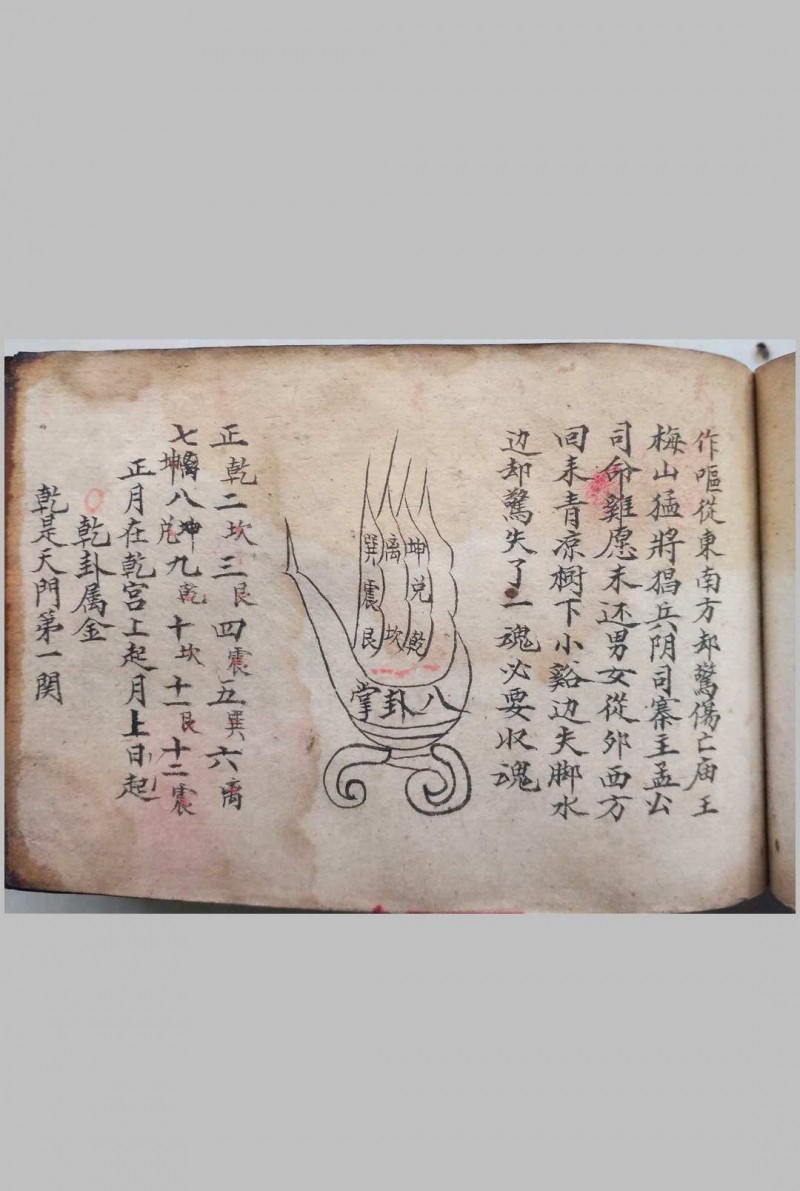 作嘔從東南方却驚傷亡庙王
梅山猛將猖兵阴司寨主孟公
司命雞愿未还男女從外西方
回来青凉樹下小谿边失脚水
边却驚失了一魂必要収魂
巽震艮
離坎
坤兌乾
八卦掌
正乾二坎三艮四震五巽六离
七坤八兑九乾十坎十一艮十二震
正月在乾宮上起月上日起
乾卦属金
乾是天門第一関